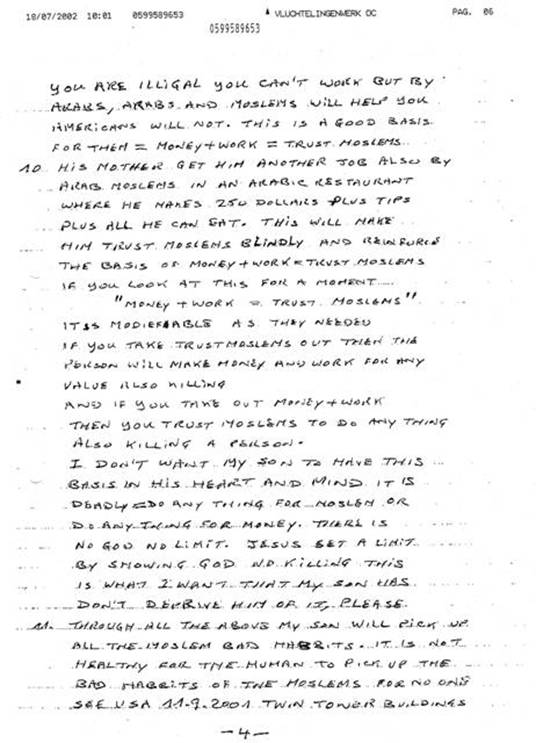 18/07/2002 10:01 0599589653 VLUCHTELINGENWERK OC PAG. 06
0599589653
YOU ARE ILLIGAL YOU CAN'T WORK BUT BY
ARABS, ARABS AND MOSLEMS WILL HELP YOU
AMERICANS WILL NOT. THIS IS A GOOD BASIS
FOR THEM = MONEY+WORK = TRUST MOSLEMS
10. HIS MOTHER GET HIM ANOTHER JOB ALSO BY
ARAB MOSLEMS IN AN ARABIC RESTAURANT
WHERE HE MAKES 250 DOLLARS PLUS TIPS
PLUS ALL HE CAN EAT. THIS WILL MAKE
HIM TRUST MOSLEMS BLINDLY AND REINFORCE
THE BASIS OF MONEY+WORK=TRUST MOSLEMS
IF YOU LOOK AT THIS FOR A MOMENT.....
"MONEY + WORK = TRUST MOSLEMS"
IT IS MODIEFEABLE AS THEY NEEDED
IF YOU TAKE TRUST MOSLEMS OUT THEN THE
PERSON WILL MAKE MONEY AND WORK FOR ANY
VALUE ALSO KILLING
AND IF YOU TAKE OUT MONEY+WORK
THEN YOU TRUST MOSLEMS TO DO ANY THING
ALSO KILLING A PERSON.
I DON'T WANT MY SON TO HAVE THIS
BASIS IN HIS HEART AND MIND. IT IS
DEADLY = DO ANY THING FOR MOSLEM OR
DO ANY THING FOR MONEY. THERE IS
NO GOD NO LIMIT. JESUS SET A LIMIT
BY SHOWING GOD NO KILLING THIS
IS WHAT I WANT THAT MY SON HAS
DON'T DEPRIVE HIM OF IT, PLEASE.
11. THROUGH ALL THE ABOVE MY SON WILL PICK UP
ALL THE MOSLEM BAD HABBITS. IT IS NOT
HEALTHY FOR THE HUMAN TO PICK UP THE
BAD HABBITS OF THE MOSLEMS FOR NO ONE
SEE USA 11-9-2001 TWIN TOWER BUILDINGS
-4-